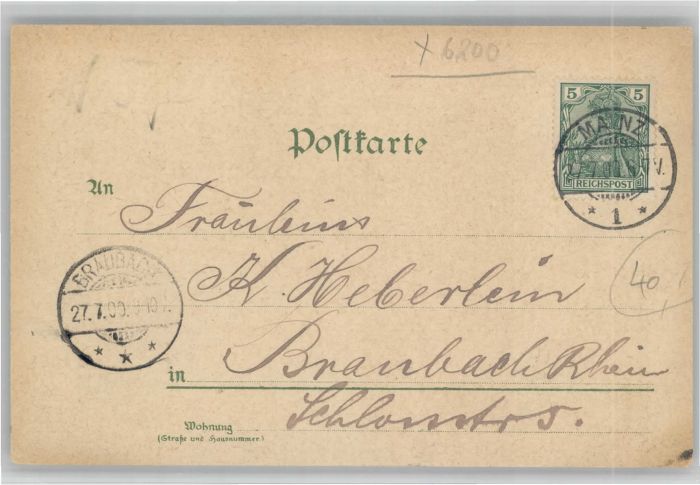 x 6200
5 5
Postkarte
MAINZ
REICHSPOST
* 1 *
An
Fräuleins
K. Heberlein
40,
BRAUBACH
27.7.00.
* * *
in Braubach Rhein
Schlomstrs.
Wohnung
(Straße und Hausnummer.)